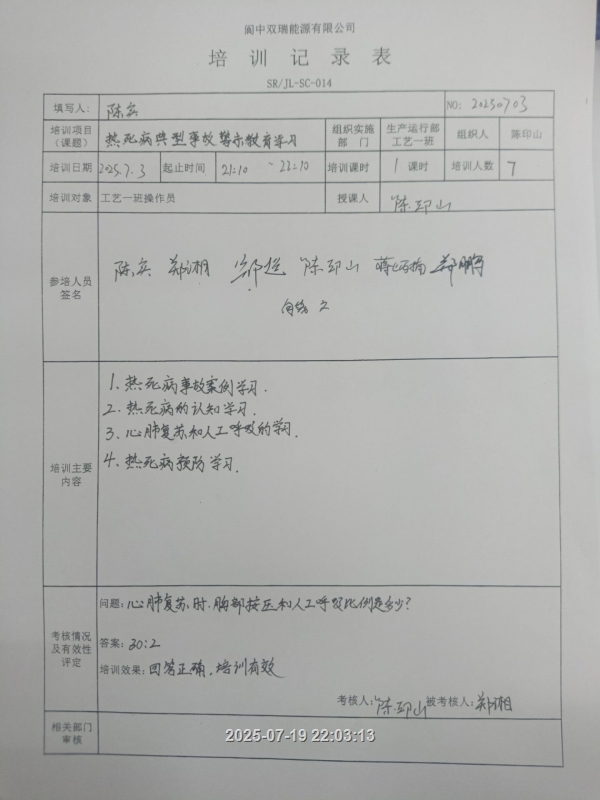 阆中双瑞能源有限公司
培训记录表
SR/JL-SC-014
填写人： 陈实 NO: 20250703
培训项目（课题） 热死病典型事故警示教育学习 组织实施部门 生产运行部工艺一班 组织人 陈印山
培训日期 2025.7.3 起止时间 21:10 - 22:10 培训课时 1 课时 培训人数 7
培训对象 工艺一班操作员 授课人 陈印山
参培人员签名 陈实 郑湘 陈印山
培训主要内容
1. 热死病事故案例学习.
2. 热死病的认知学习.
3、心肺复苏和人工呼吸的学习.
4. 热死病预防学习.
考核情况及有效性评定
问题：心肺复苏时.胸部按压和人工呼吸比例是多少？
答案：30:2
培训效果：回答正确，培训有效
考核人：陈印山 被考核人：郑湘
相关部门审核
2025-07-19 22:03:13